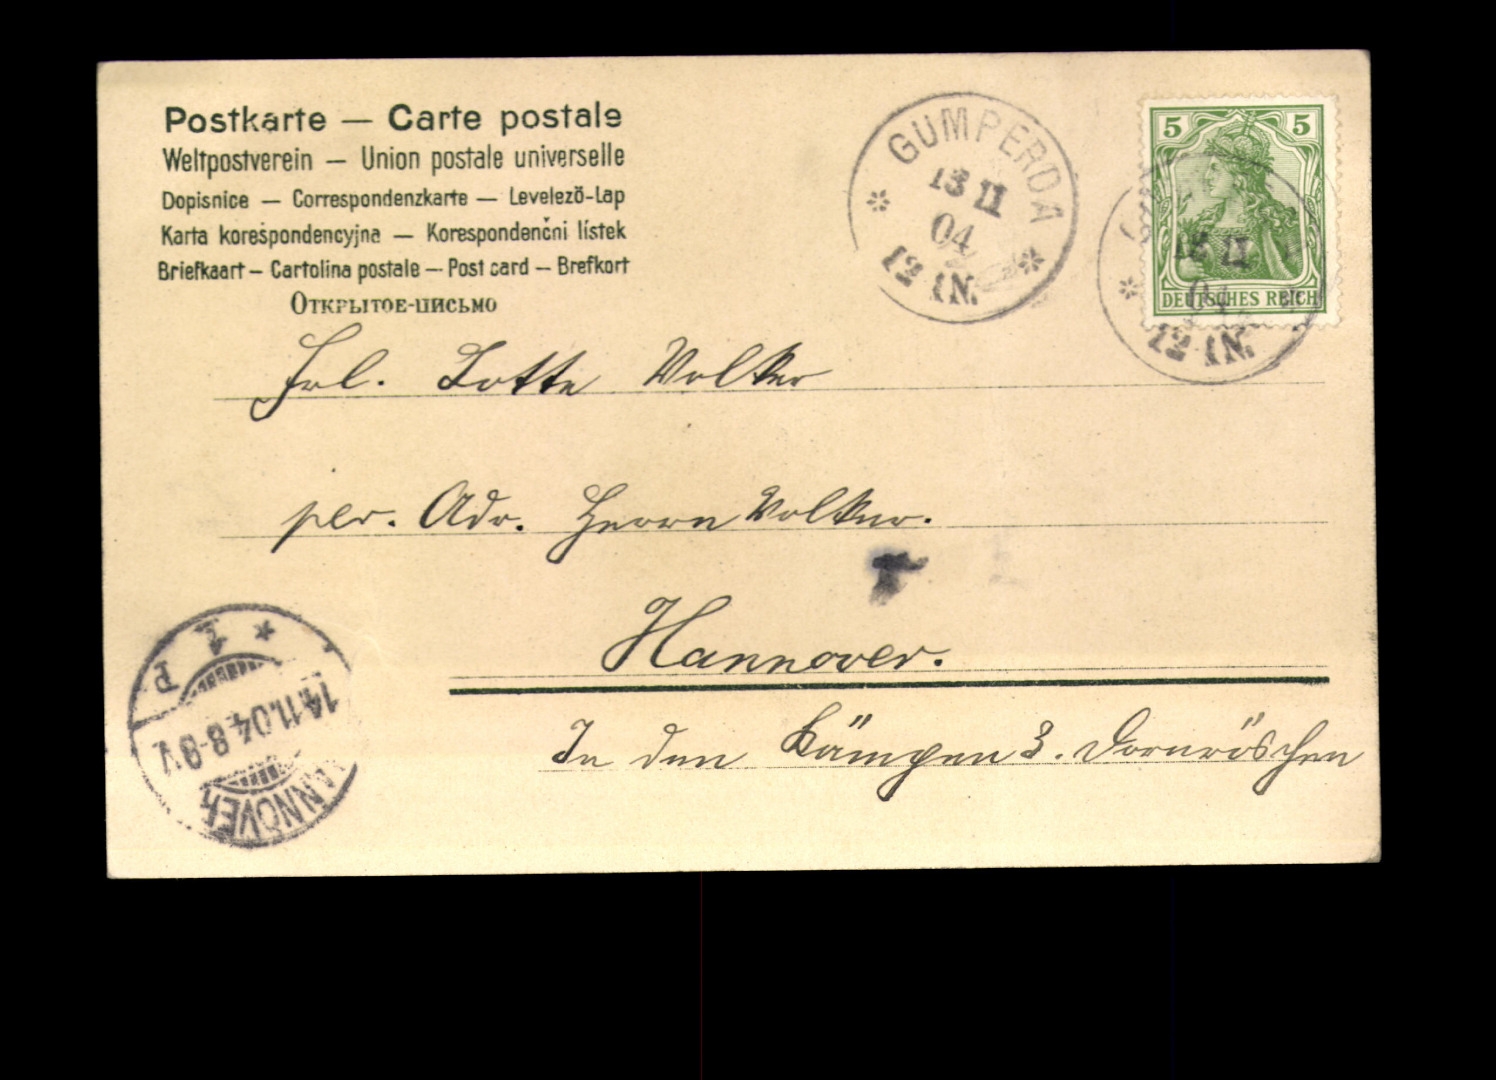 Postkarte — Carte postale
Weltpostverein — Union postale universelle
Dopisnice — Correspondenzkarte — Levelező-Lap
Karta korespondencyjna — Korespondenční lístek
Briefkaart — Cartolina postale — Post card — Brefkort
Открытое-письмо
GUMPERDA
13 11
04
12-1N.
5 5
DEUTSCHES REICH
12-1N.
Frl. Lotte Volker
per. Adr. Herrn Volker.
Hannover.
In den Kämpen 3. Dornröschen
HANNOVER
14.11.04.8-9V.
1 P